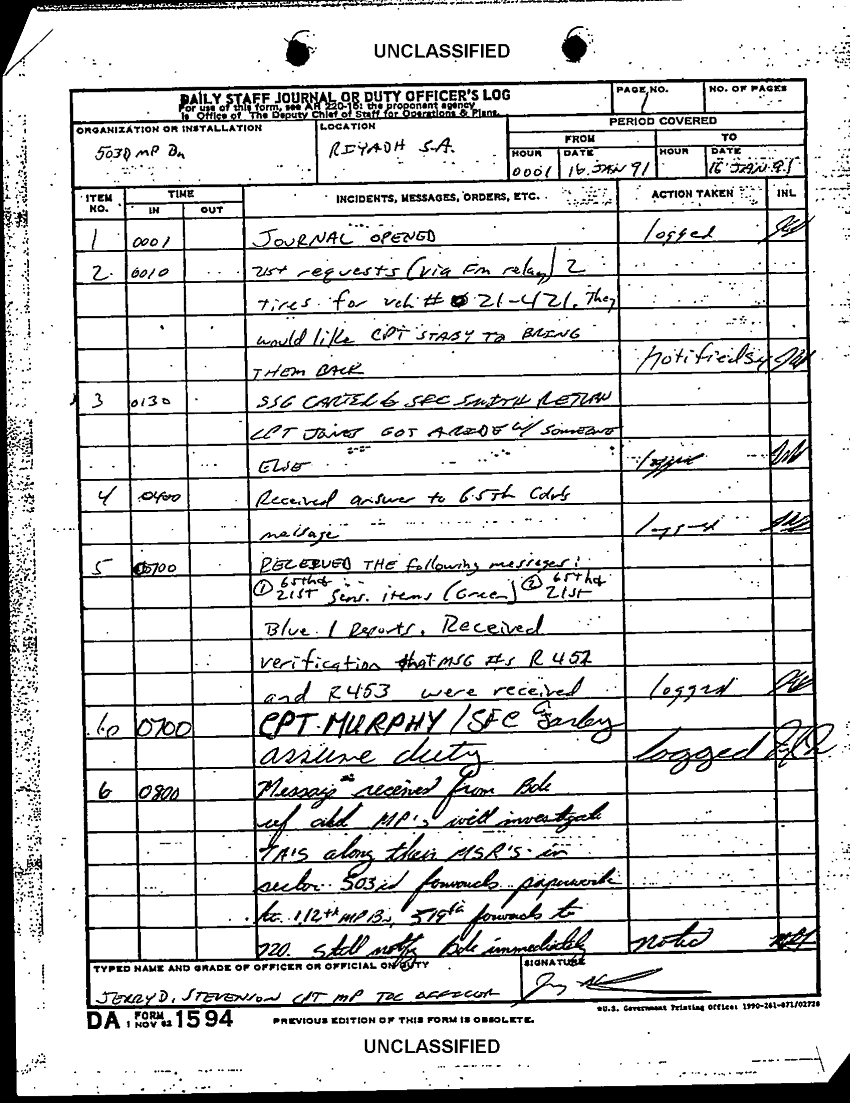 UNCLASSIFIED
DAILY STAFF JOURNAL OR DUTY OFFICER'S LOG
For use of this form, see AR 220-15; the proponent agency
is Office of The Deputy Chief of Staff for Operations & Plans.
PAGE NO.
1
NO. OF PAGES
ORGANIZATION OR INSTALLATION
503D MP Bn
LOCATION
RIYADH S.A.
PERIOD COVERED
FROM
TO
HOUR
DATE
HOUR
DATE
0001
16 JAN 91
16 JAN 91
ITEM NO.
TIME
IN
OUT
INCIDENTS, MESSAGES, ORDERS, ETC.
ACTION TAKEN
INL
1 0001 JOURNAL OPENED logged
2 0010 21st requests (via Fm relay) 2
tires for veh # 21-421. They
would like CPT STABY TO BRING
THEM BACK notified
3 0130 SSG CARTER & SFC SMITH RETURN
CPT JONES GOT A RIDE w/ SOMEONE
ELSE logged
4 0400 Received answer to 65th Cdrs
message logged
5 0700 RECEIVED THE following messages:
① 65th & 21ST Sens. items (Green) ② 65th & 21st
Blue 1 Reports. Received
verification that MSG #s R 452
and R453 were received logged
0700 CPT MURPHY / SFC
assume duty logged
6 0800 Message received from Bde
MP's will investigate
TA'S along their MSR'S in
sector. 503rd forwards paperwork
to 112th MP Bn, 519th forwards to
720. Still notify Bde immediately noted
TYPED NAME AND GRADE OF OFFICER OR OFFICIAL ON DUTY
JERRY D. STEVENSON CPT MP TOC OFFICER
SIGNATURE
DA FORM 1 NOV 62 1594
PREVIOUS EDITION OF THIS FORM IS OBSOLETE.
*U.S. Government Printing Office: 1990-261-871/02728
UNCLASSIFIED